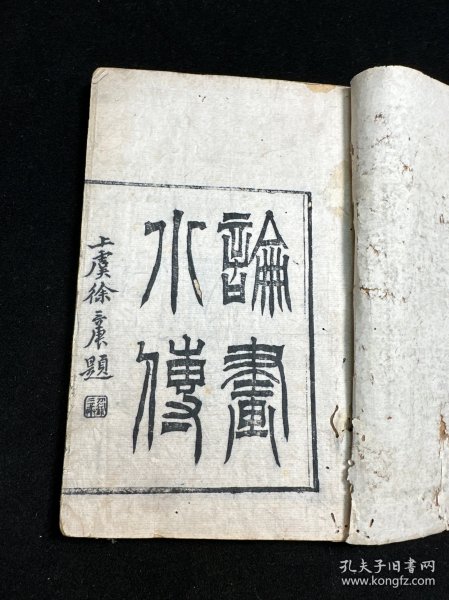 論畫
小傳
上虞徐三庚題
孔夫子旧书网
www.kongfz.com